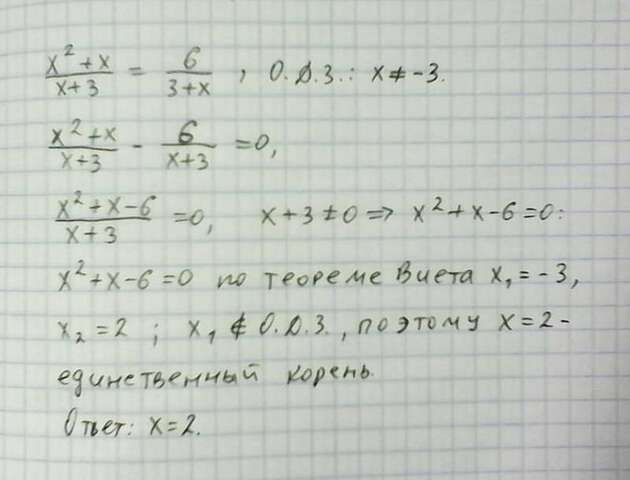 (x²+x)/(x+3) = 6/(3+x) , О.Д.З.: x≠-3.
(x²+x)/(x+3) - 6/(x+3) =0,
(x²+x-6)/(x+3) =0, x+3≠0 => x²+x-6=0:
x²+x-6=0 по теореме Виета x₁=-3,
x₂=2 ; x₁ ∉ О.Д.З., поэтому x=2-
единственный корень.
Ответ: x=2.